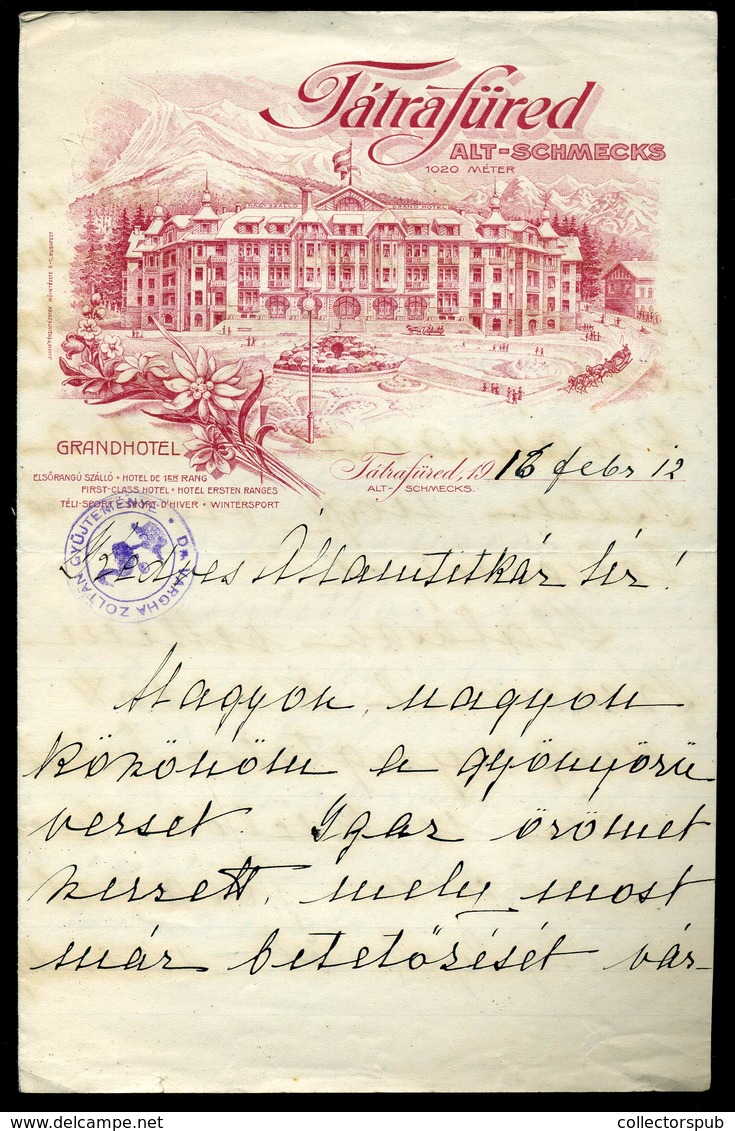 Tátrafüred
ALT-SCHMECKS
1020 MÉTER
NAGYSZÁLLÓ GRAND HOTEL
GRANDHOTEL
ELSŐRANGÚ SZÁLLÓ • HOTEL DE 1ER RANG
FIRST-CLASS HOTEL • HOTEL ERSTEN RANGES
TÉLI-SPORT • SPORT-D'HIVER • WINTERSPORT
Tátrafüred, 1916 febr 12
ALT- SCHMECKS.
Dr. VARGHA ZOLTÁN GYŰJTEMÉNYE •
Kedves Államtitkár úr!
Nagyon, nagyon
köszönöm a gyönyörű
verset. Igaz örömet
szerzett, mely most
már betetőzését vár-
collectorspub